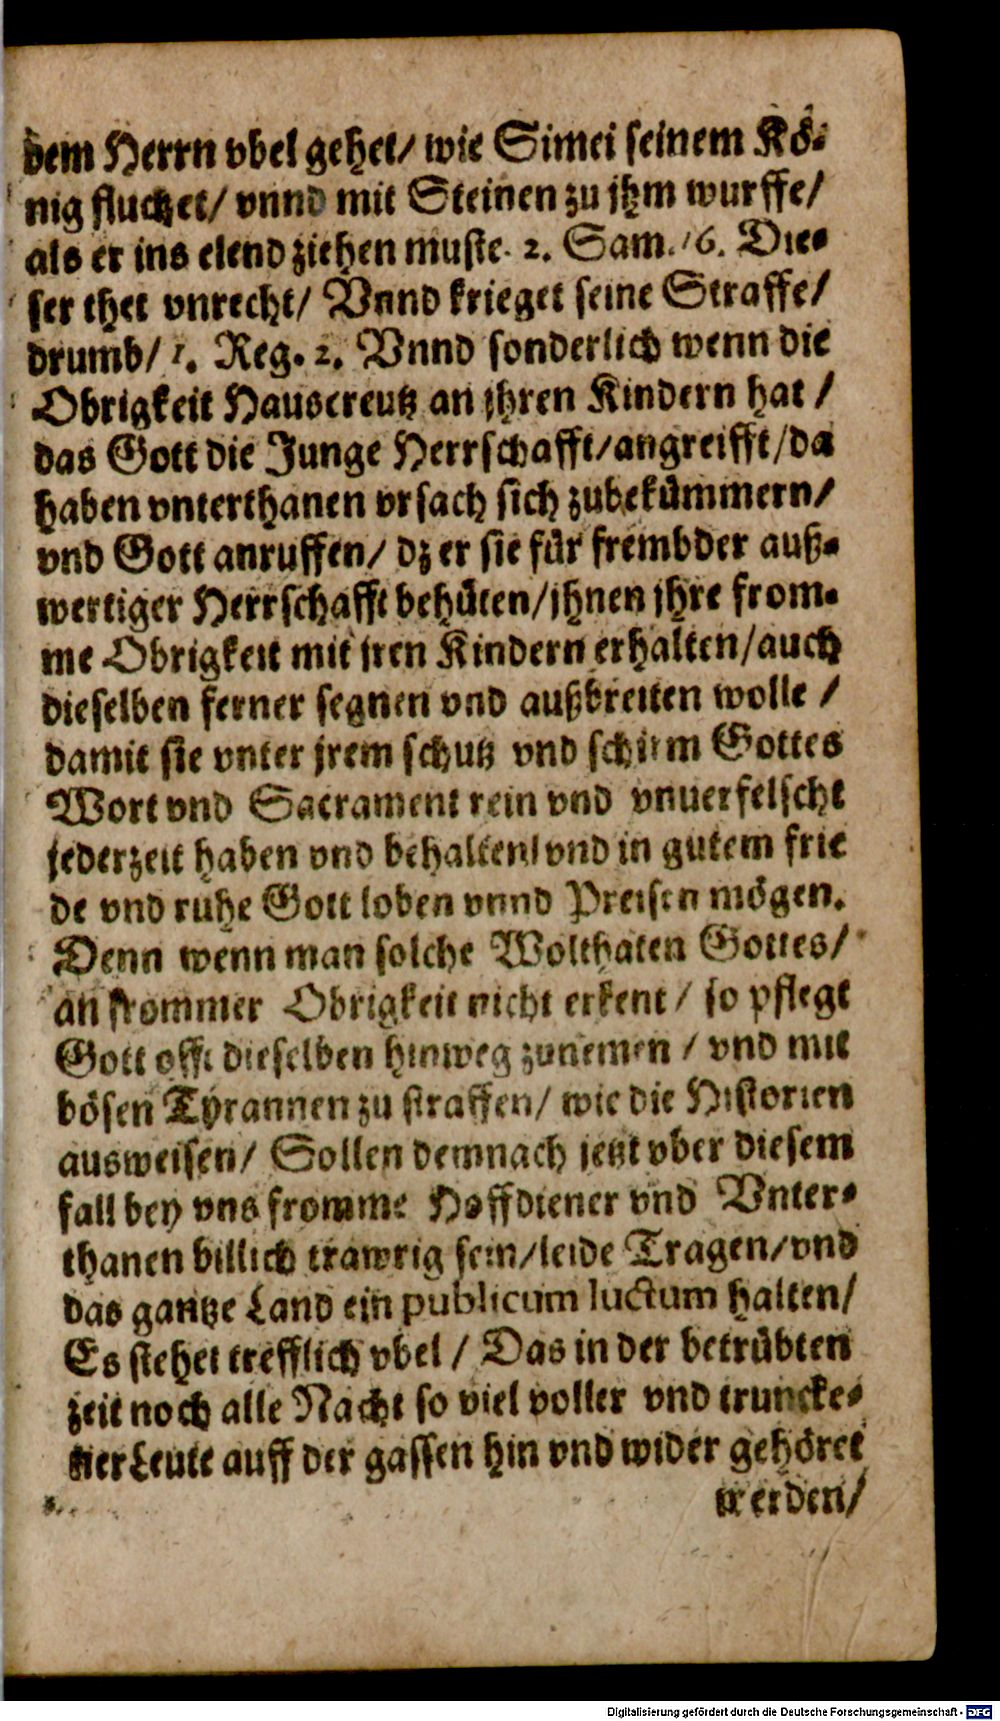 dem Herrn vbel gehet/ wie Simei seinem Kö-
nig fluchet/ vnnd mit Steinen zu jhm wurffe/
als er ins elend ziehen muste. 2. Sam. 16. Die-
ser thet vnrecht/ Vnnd krieget seine Straffe/
drumb/ 1. Reg. 2. Vnnd sonderlich wenn die
Obrigkeit Hauscreutz an jhren Kindern hat /
das Gott die Junge Herrschafft/angreifft/da
haben vnterthanen vrsach sich zubekümmern/
vnd Gott anruffen/ dz er sie für frembder auß-
wertiger Herrschafft behüten/jhnen jhre from-
me Obrigkeit mit jren Kindern erhalten/auch
dieselben ferner segnen vnd außbreiten wolle /
damit sie vnter jrem schutz vnd schirm Gottes
Wort vnd Sacrament rein vnd vnuerfelscht
jederzeit haben vnd behalten/vnd in gutem frie
de vnd ruhe Gott loben vnnd Preisen mögen.
Denn wenn man solche Wolthaten Gottes/
an frommer Obrigkeit nicht erkent / so pflegt
Gott offt dieselben hinweg zunemen / vnd mit
bösen Tyrannen zu straffen/ wie die Historien
ausweisen/ Sollen demnach jetzt vber diesem
fall bey vns fromme Hoffdiener vnd Vnter-
thanen billich trawrig sein/leide Tragen/vnd
das gantze Land ein publicum luctum halten/
Es stehet trefflich vbel / Das in der betrübten
zeit noch alle Nacht so viel voller vnd truncke-
ner Leute auff der gassen hin vnd wider gehöret
werden/
Digitalisierung gefördert durch die Deutsche Forschungsgemeinschaft - DFG